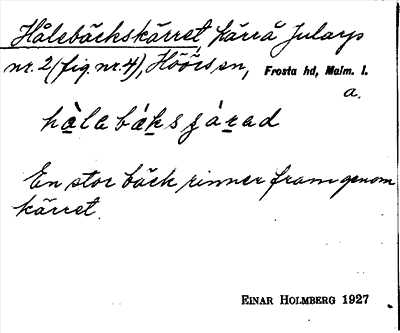 Hålebäckskärret, kärrå Jularps
nr. 2 (fig. nr. 4), Höörs sn, Frosta hd, Malm. l.
a.
hàlabáks járad
En stor bäck rinner fram genom
kärret.
EINAR HOLMBERG 1927